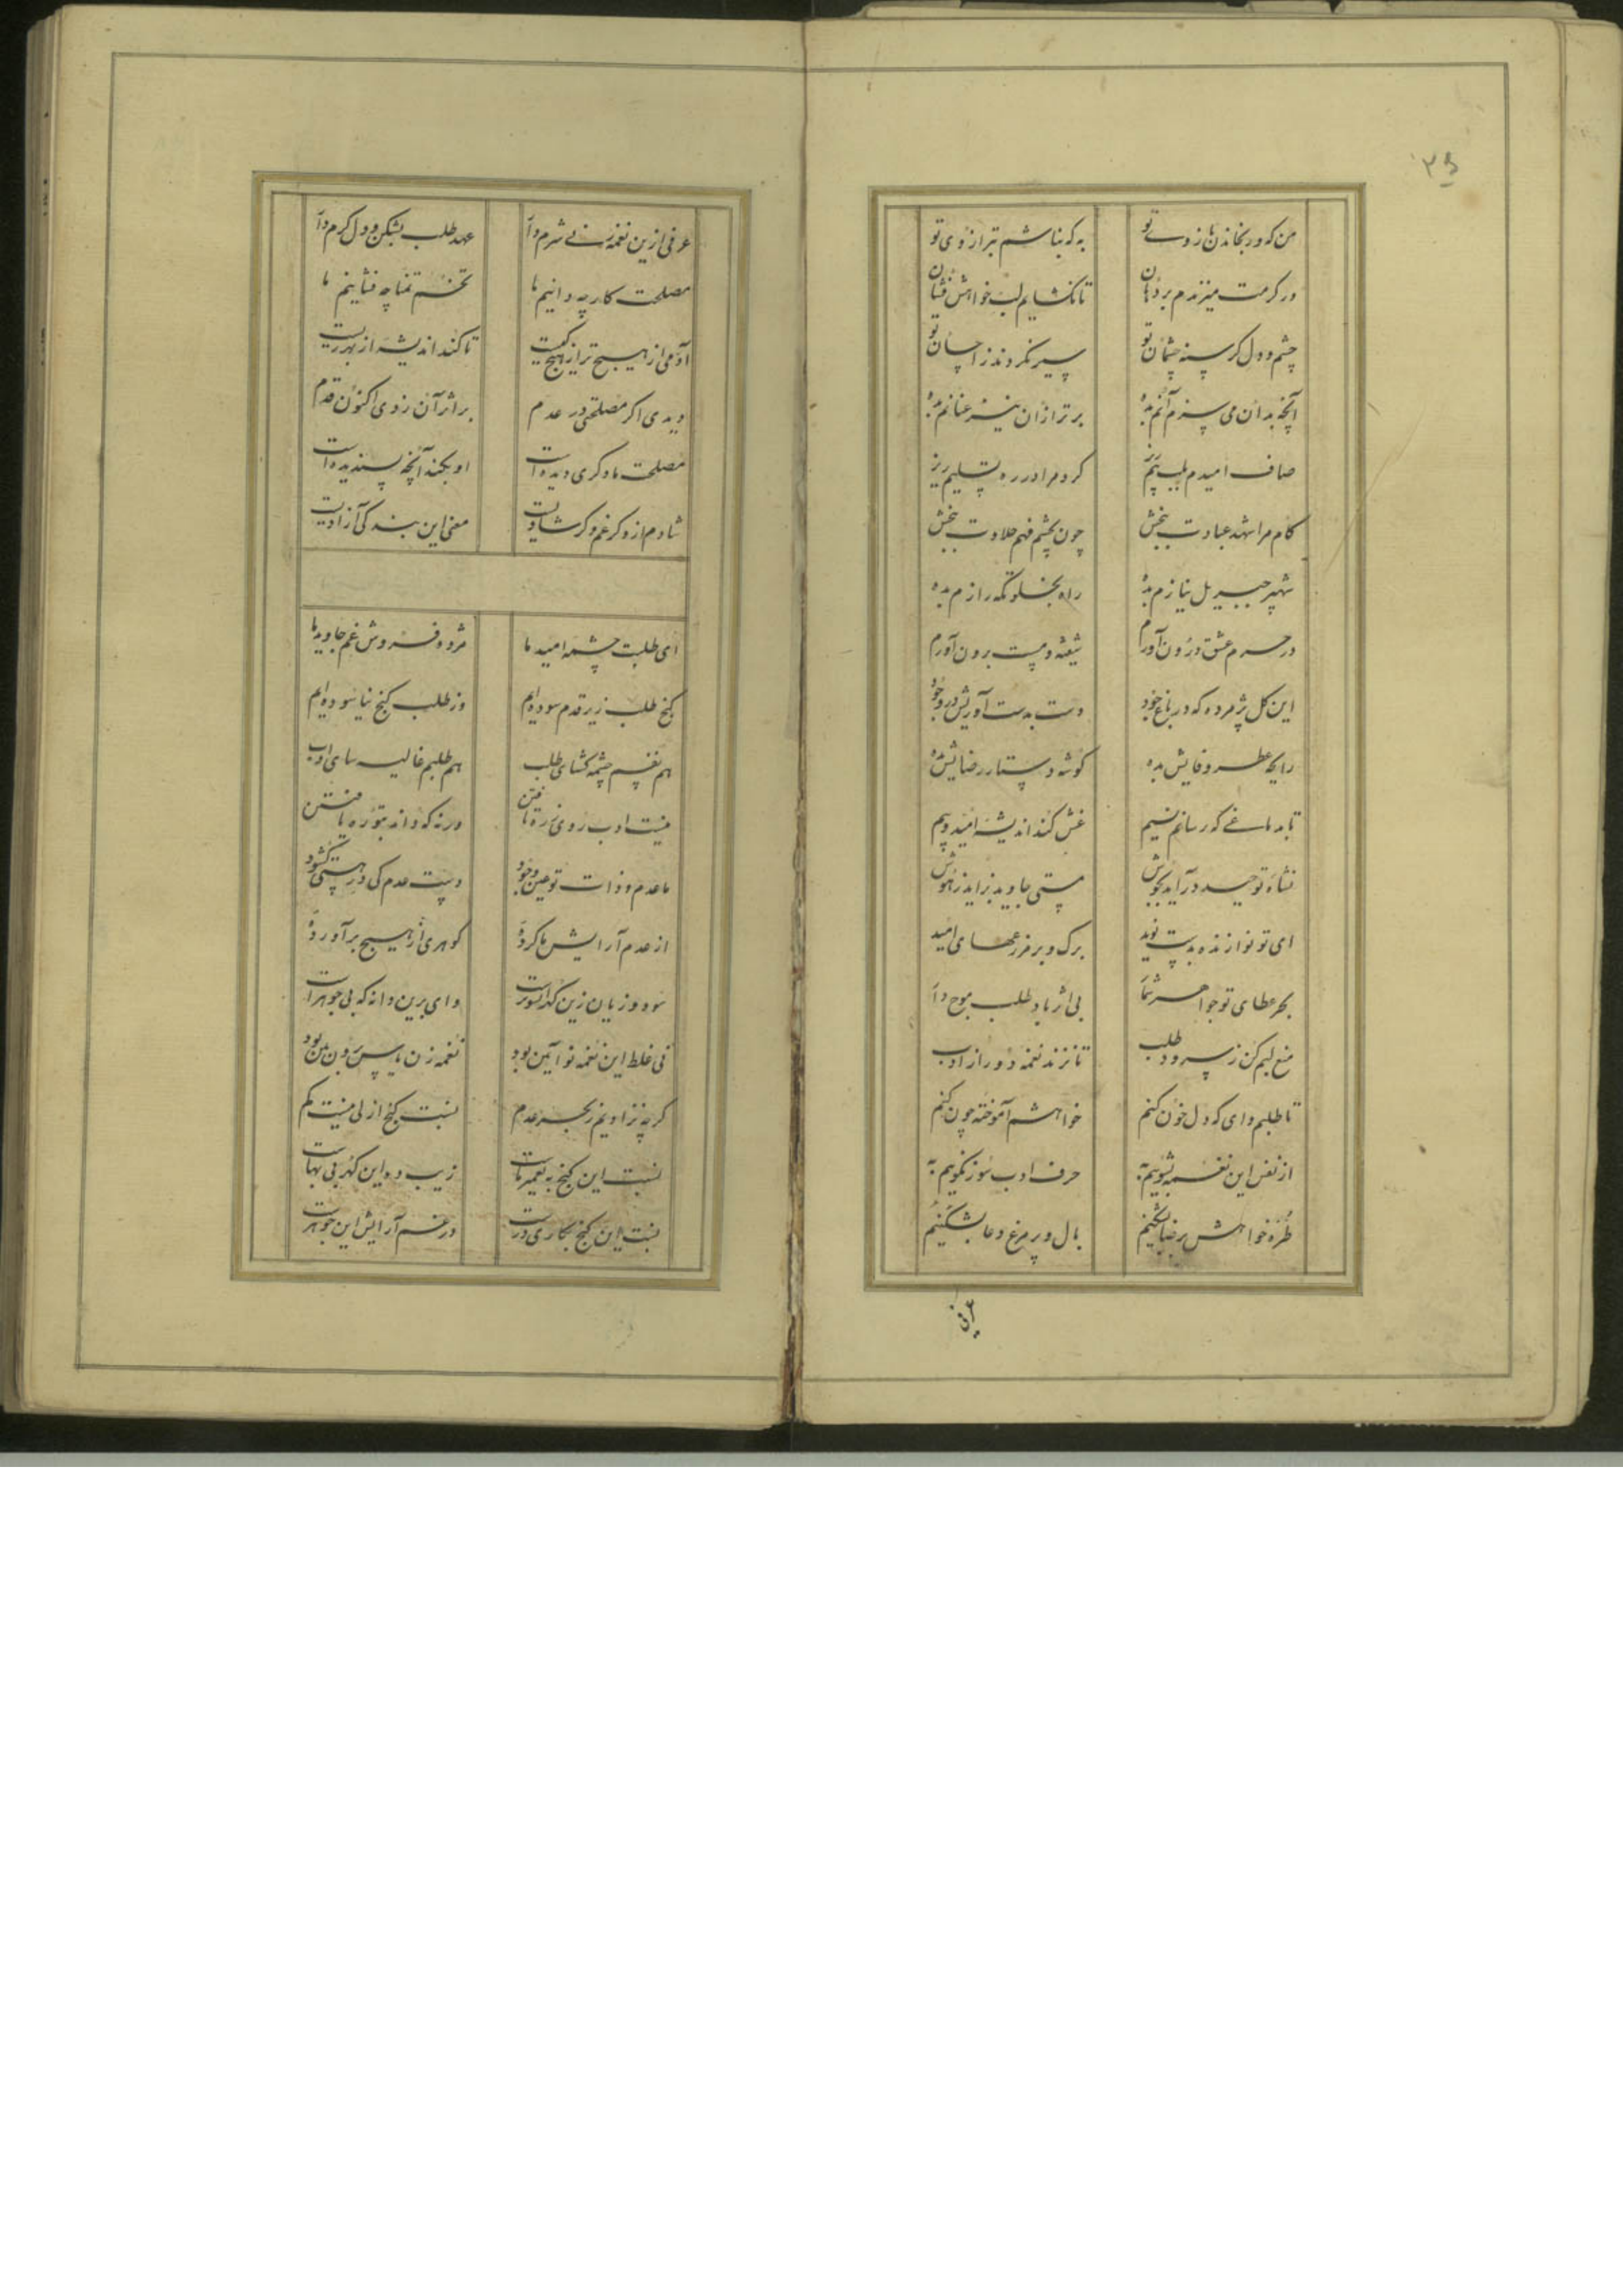 ۳۵
من که و رنجاندن بازوی تو به که نباشم بترازوی تو
ور کرمت میزندم بر دهان تا نگشایم لب خواهش فشان
چشم و دل گرسنه چشمان تو سیر نگردند ز احسان تو
آنچه بدان می سزم آنم بده برتر از آن نیز عنانم بده
صاف امیدم بلب بیم ریز گرد مرا در ره تسلیم ریز
کام مرا شهد عبادت ببخش چون بچشم فهم حلاوت ببخش
شهپر جبریل نیازم بده راه بخلوتگه رازم بده
در حرم عشق درون آورم شیفته و مست برون آورم
این گل پژمرده که در باغ خود دست بدست آوریش در وجود
رایحه عطر وفایش بده گوشه دستار رضایش بده
تا بدماغی که رسانم نسیم غش کند اندیشه امید و بیم
نشاه توحید درآید بجوش مستی جاوید بزاید ز هوش
ای تو نوازنده بدست نوید برگ و بر مزرعهای امید
بحر عطای تو جواهر شما بی اثر باد طلب موج دا
منع لبم کن ز سرود طلب تا نزند نغمه دور از ادب
تا طلبم وای که دل خون کنم خواهشم آموخته چون کنم
از نفس این نغمه بشوییم به حرف ادب سوز نگوییم به
طره خواهش برضا بشکنیم بال و پر مرغ دعا بشکنیم
عرفی
عرفی ازین نغمه زنی شرم دا عهد طلب بشکن و دل گرم دا
مصلحت کار چه دانیم ما تخم تمنا چه فشانیم ما
آدمی از هیچ تر از هیچ کیست تا کند اندیشه از بهر زیست
دیدی اگر مصلحتی در عدم بر اثر آن زدی اکنون قدم
مصلحت ما دگری دیده است او بکند آنچه پسندیده است
شادم ازو گر غم و گر شادیست معنی این بندگی آزادیست
ای طلبت چشمه امید ما مژده فروش غم جاوید ما
گنج طلب زیر قدم سوده ایم وز طلب گنج نیاسوده ایم
هم نفسم چشمه گشای طلب هم طلبم غالیه سای ادب
نیست ادب روی ز ره تافتن ورنه که داند بتو ره یافتن
ما عدم و ذات تو عین وجود دست عدم کی در هستی گشود
از عدم آرایش ما کردهٔ گوهری از هیچ برآوردهٔ
سود و زیان زین گهر اسوبر است وای برین دانه که بی جوهر است
نی غلط این نغمه نو آیین بود نغمه زن یاس برون بین بود
گر چه نزادیم ز بحر عدم نسبت گنج ازلی نیست کم
نسبت این گنج به تعمیر ماست زیب ده این گهر بی بهاست
نسبت این گنج بکاری درست در غم آرایش این جوهرست